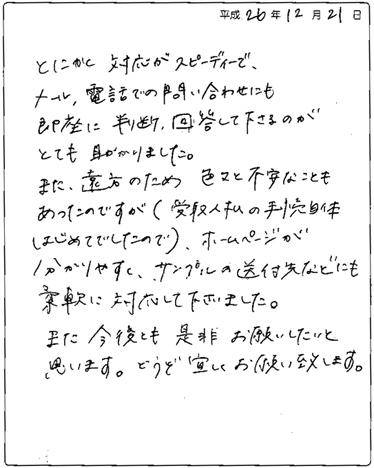 平成 26 年 12 月 21 日
とにかく 対応がスピーディーで、
メール, 電話での問い合わせにも
即座に 判断, 回答して下さるのが
とても 助かりました。
また、遠方のため 色々と不安なことも
あったのですが(受取人払の手続自体
はじめてでしたので)、ホームページが
分かりやすく、サンプルの送付先などにも
柔軟に対応して下さいました。
また今後とも 是非 お願いしたいと
思います。どうぞ宜しくお願い致します。